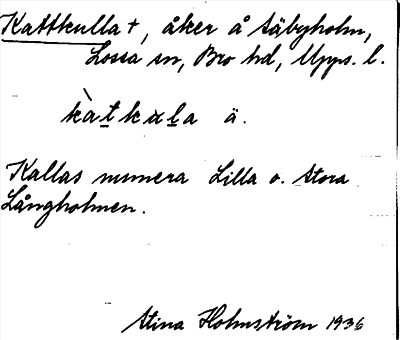 Kattkulla +, åker å Säbyholm,
Lossa sn, Bro hd, Upps. l.
kàtkula ä.
Kallas numera Lilla o. Stora
Långholmen.
Stina Holmström 1936